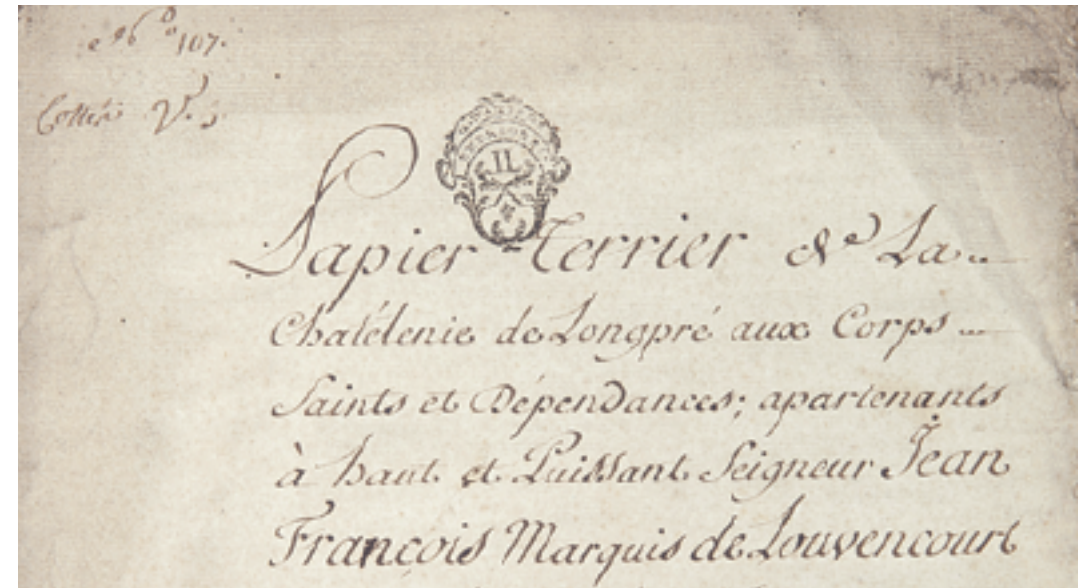 N.º 107.
Cottéé V. 3.
Papier Terrier de La
Chatélenie de Longpré aux Corps
Saints et Dépendances; apartenants
à haut et Puissant Seigneur Jean
François Marquis de Louvencourt